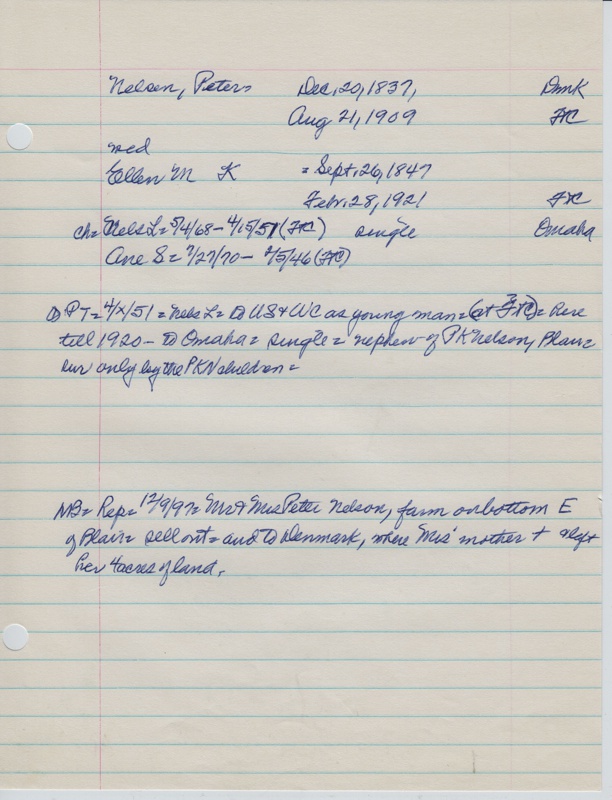 Nelson, Peter Dec, 20, 1837, Dmk
Aug 21, 1909 FtC
med
Ellen M K = Sept, 26, 1847
Febr. 28, 1921 FtC
ch= Nels L= 5/4/68 - 4/15/51 (FtC) single Omaha
Ane S= 7/27/70 - 2/5/46 (FtC)
PT= 4/x/51 = Nels L= to US & WC as young man= (at FtC)= here
till 1920 - to Omaha = single = nephew of PK Nelson, Blair=
sur only by the PKN children =
MB= Rep= 12/9/97= Mr & Mrs Peter Nelson, farm on bottom E
of Blair= sell out= and to Denmark, where Mrs' mother + & left
her 4 acres of land.